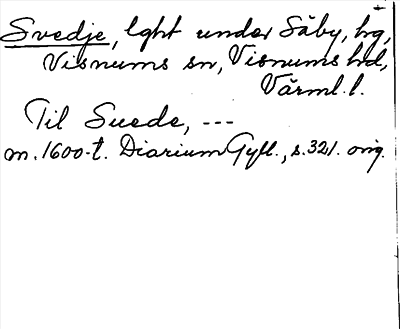 Svedje, lght under Säby, hg,
Visnums sn, Visnums hd,
Värml. l.
Til Suede, ---
m. 1600-t. Diarium Gyll., s. 321. orig.